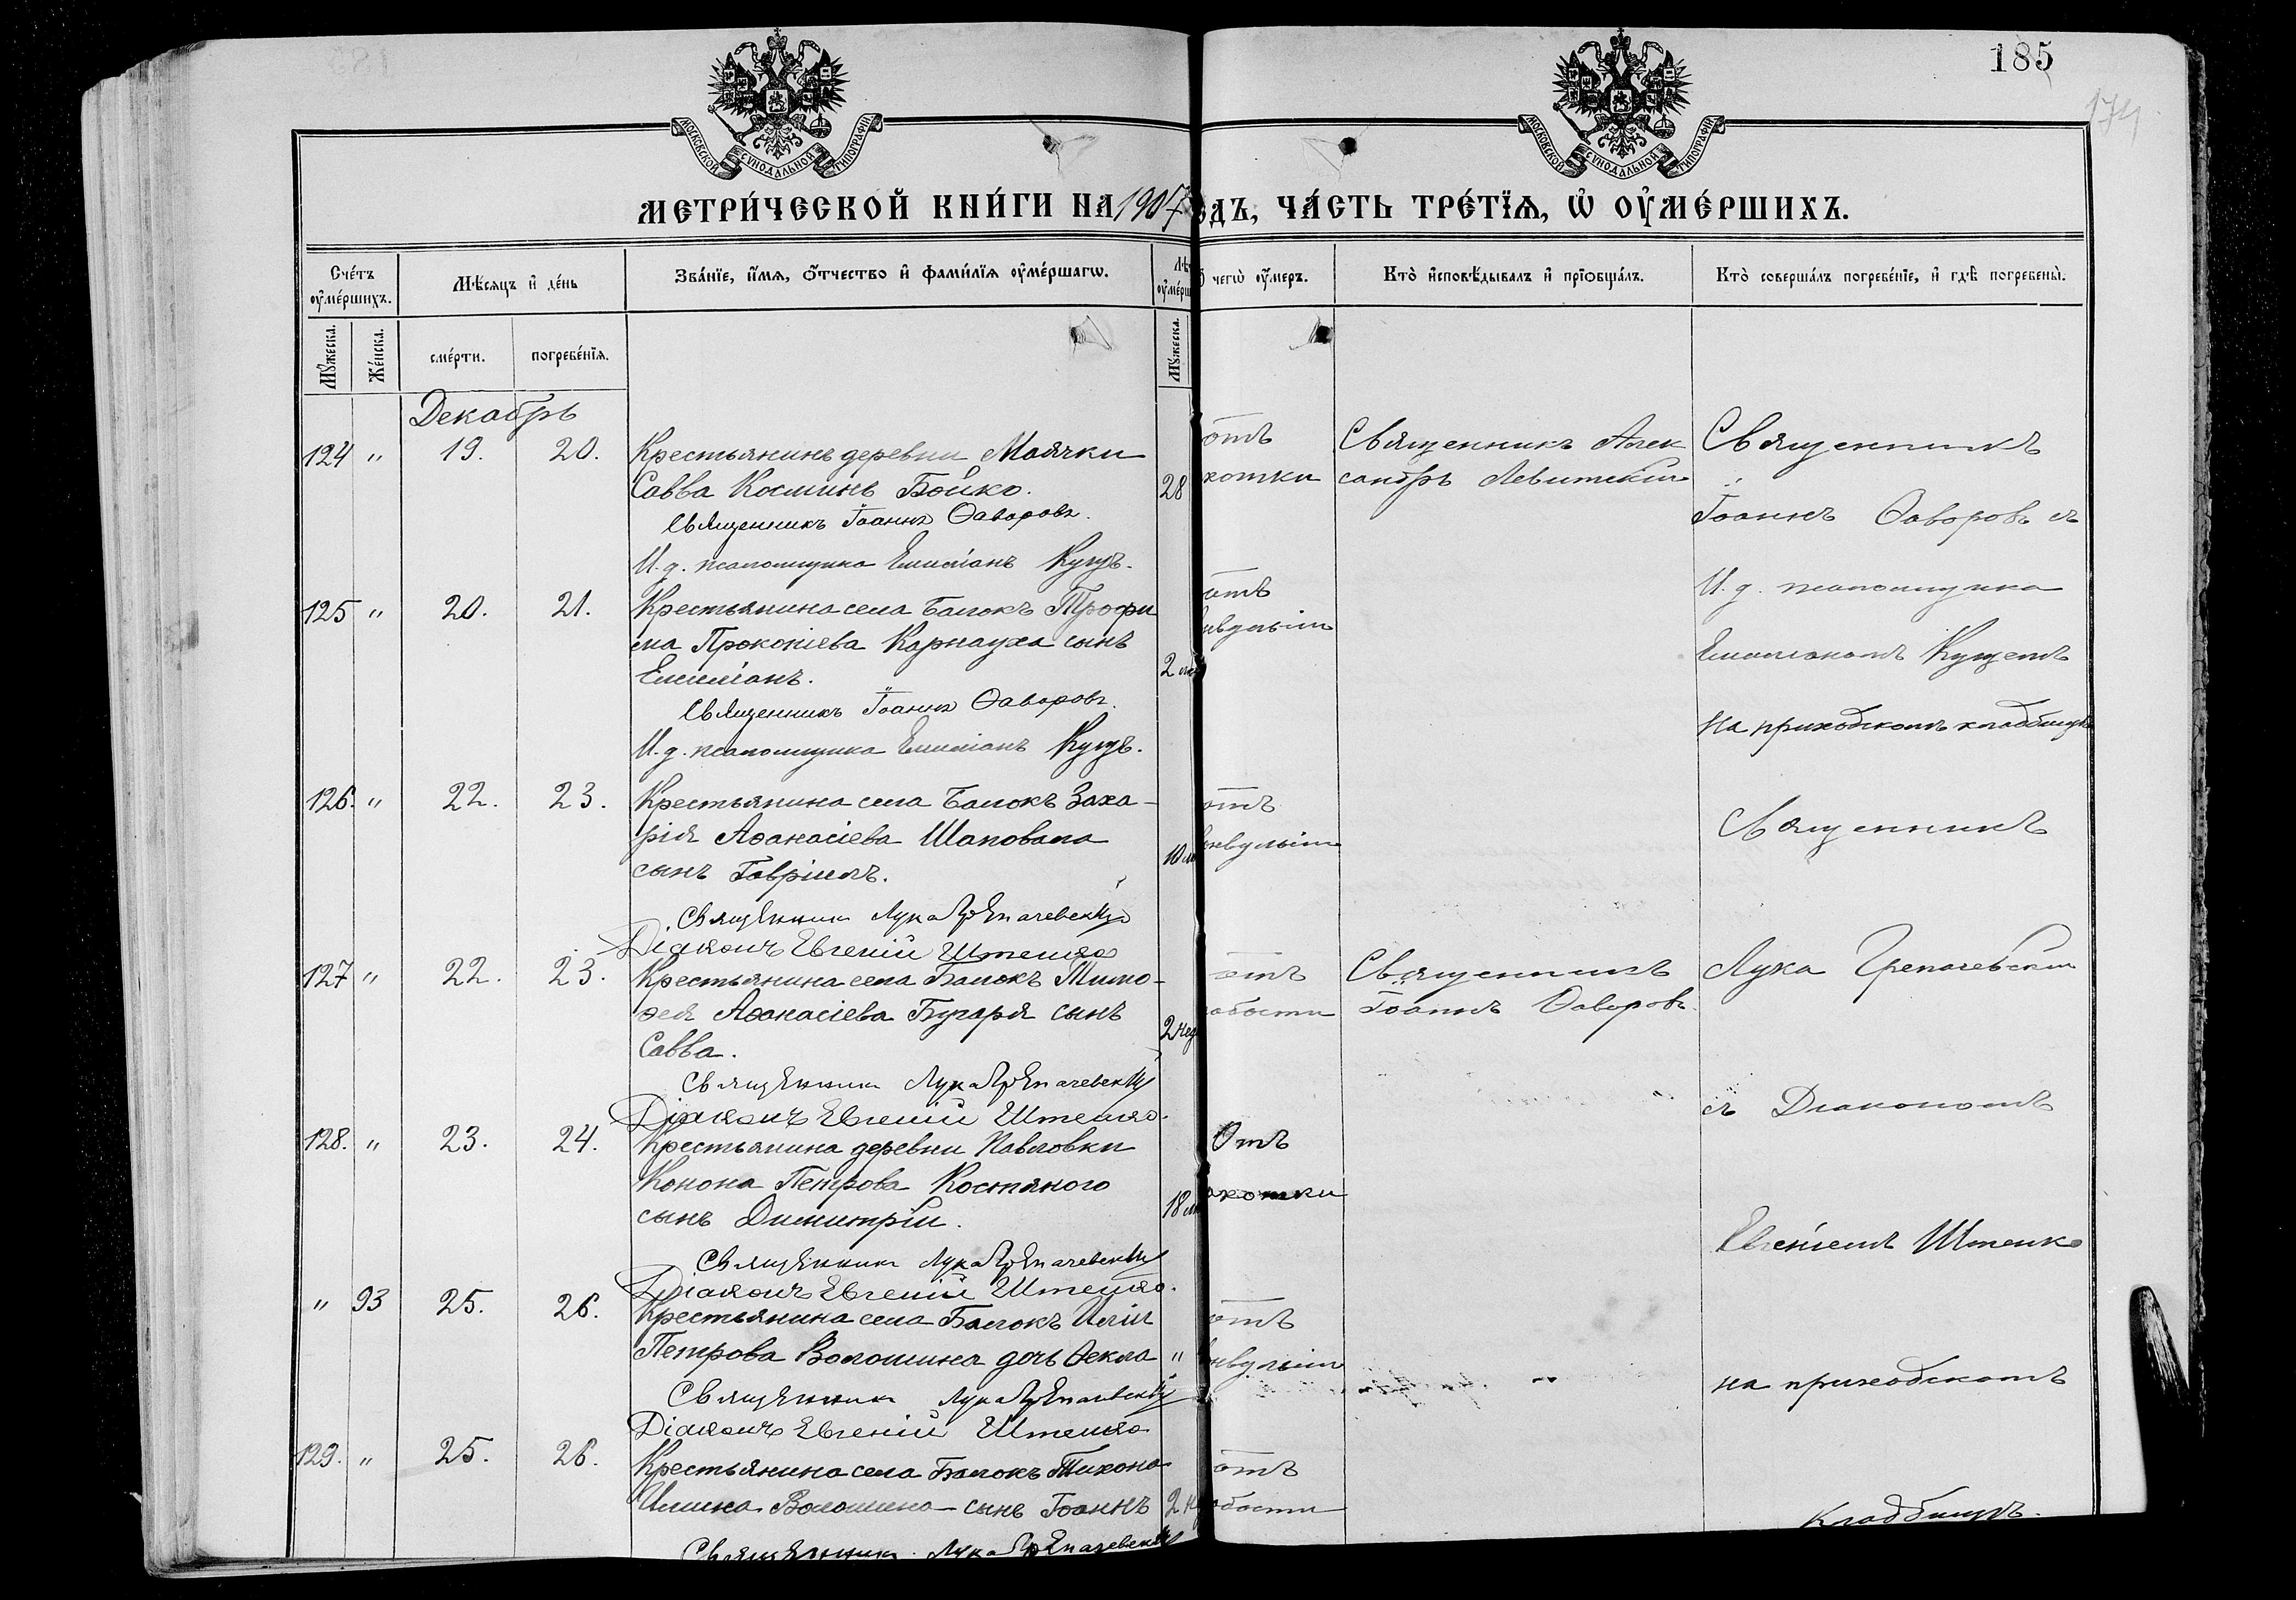 185
174
МОСКОВСКОЙ СѴНОДАЛЬНОЙ ТИПОГРАФІИ
МОСКОВСКОЙ СѴНОДАЛЬНОЙ ТИПОГРАФІИ
МЕТРИ́ЧЕСКОЙ КНИ́ГИ НА 1907
ЧА́СТЬ ТРЕ́ТЇѦ, Ѡ҆ ОУ҆МЕ́РШИХЪ.
Сче́тъ оу҆ме́ршихъ.
Мꙋ́жеска.
Же́нска.
Мѣ́сѧцъ и҆ де́нь
сме́рти.
погребе́нїѧ.
Зва́нїе, и҆́мѧ, ѻ҆́тчество и҆ фами́лїѧ оу҆ме́ршагѡ.
Мꙋ́жеска.
чегѡ̀ оу҆́меръ.
Кто̀ и҆сповѣ́дывалъ и҆ прїѻбща́лъ.
Кто̀ соверша́лъ погребе́нїе, и҆ гдѣ̀ погребены̀.
Декабрь
124 " 19. 20. Крестьянинъ деревни Маячки
Савва Косминъ Бойко. 28
Священникъ Іоаннъ Ѳаворовъ.
И. д. псаломщика Емиліанъ Куцъ.
отъ
Священникъ Алек
сандръ Левитскій
Священникъ
Іоаннъ Ѳаворовъ съ
И. д. псаломщика
125 " 20. 21. Крестьянина села Балокъ Трофи
ма Прокопіева Карнауха сынъ
Емиліанъ. 2
Священникъ Іоаннъ Ѳаворовъ.
И. д. псаломщика Емиліанъ Куцъ.
отъ
Емиліаномъ Куцемъ
на приходскомъ кладбищѣ
126. " 22. 23. Крестьянина села Балокъ Заха-
рія Аѳанасіева Шаповала
сынъ Гавріилъ. 10
Священникъ Лука
Діаконъ Евгеній Штепко
отъ
Священникъ
127 " 22. 23. Крестьянина села Балокъ Тимо-
ѳея Аѳанасіева Бугаря сынъ
Савва. 2 нед
Священникъ Лука
Діаконъ Евгеній Штепко.
отъ
Священникъ
Іоаннъ Ѳаворовъ.
Лука
съ Діакономъ
128. " 23. 24. Крестьянина деревни Павловки
Конона Петрова Костяного
сынъ Димитрій. 18
Священникъ Лука
Діаконъ Евгеній Штепко.
Отъ
Евгеніемъ Штепко
" 93 25. 26. Крестьянина села Балокъ Иліи
Петрова Волошина дочь Ѳекла "
Священникъ Лука
Діаконъ Евгеній Штепко
отъ
на приходскомъ
129. " 25. 26. Крестьянина села Балокъ Тихона
Илина Волошина сынъ Іоаннъ 2
Священникъ Лука
отъ
кладбищѣ.